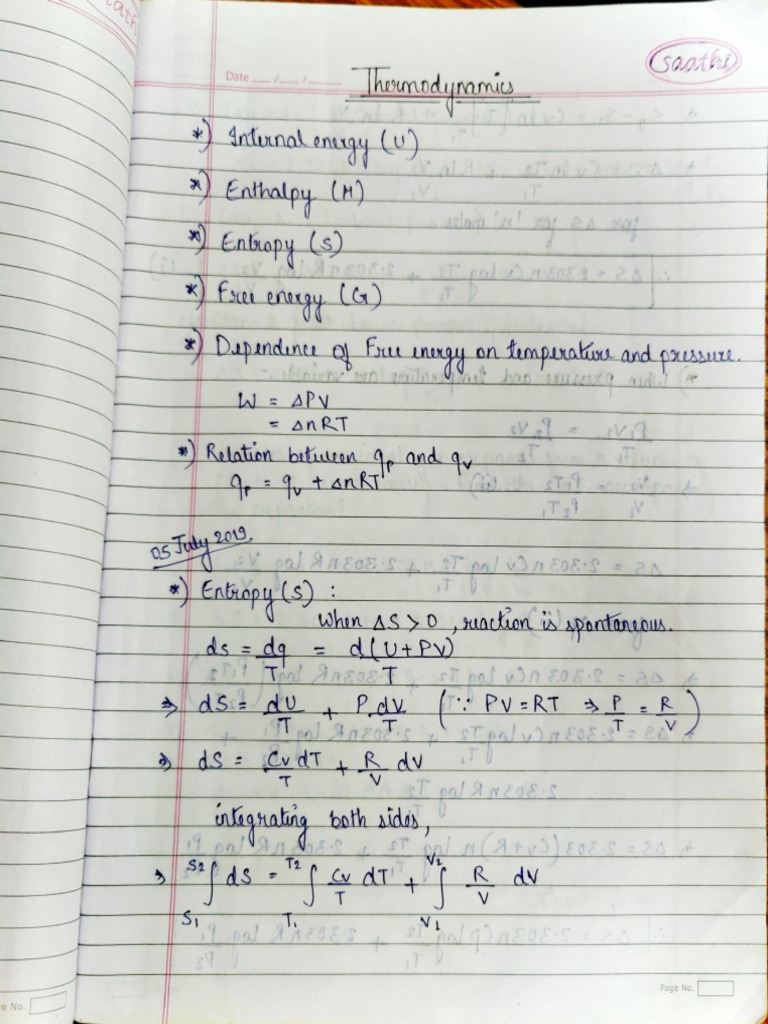 saathi
Date __/__/__
Thermodynamics
*) Internal energy (U)
*) Enthalpy (H)
*) Entropy (S)
*) Free energy (G)
*) Dependence of Free energy on temperature and pressure.
W = ΔPV
= ΔnRT
*) Relation between qp and qv
qp = qv + ΔnRT
05 July 2019
*) Entropy (S) :
When ΔS > 0, reaction is spontaneous.
ds = dq/T = d(U+PV)/T
⇒ dS = dU/T + P dV/T (∵ PV = RT ⇒ P/T = R/V)
⇒ dS = Cv dT/T + R/V dV
integrating both sides,
⇒ S1 ∫ S2 dS = T1 ∫ T2 Cv/T dT + V1 ∫ V2 R/V dV
Page No.
e No.